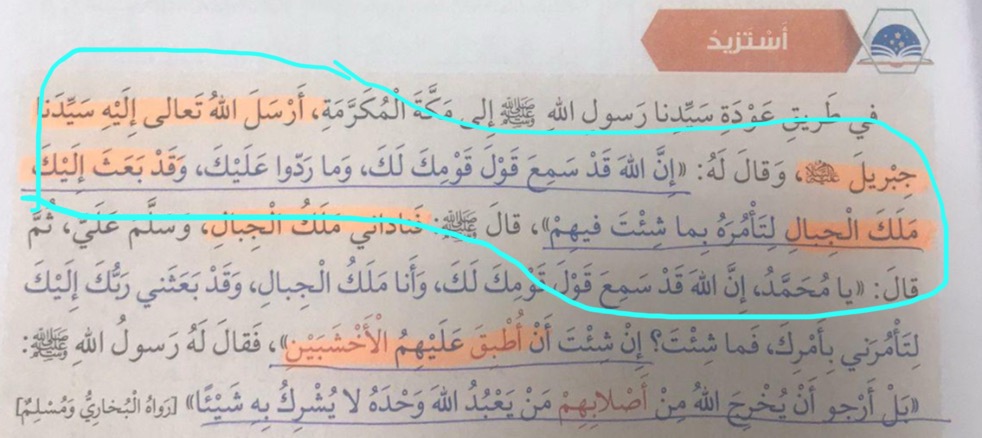 أَسْتَزيدُ
في طَريقِ عَوْدَةِ سَيِّدِنا رَسولِ اللهِ ﷺ إلى مَكَّةَ الْمُكَرَّمَةِ، أَرْسَلَ اللهُ تَعالى إِلَيْهِ سَيِّدَنا
جِبْريلَ عليه السلام، وَقالَ لَهُ: «إِنَّ اللهَ قَدْ سَمِعَ قَوْلَ قَوْمِكَ لَكَ، وَما رَدّوا عَلَيْكَ، وَقَدْ بَعَثَ إِلَيْكَ
مَلَكَ الْجِبالِ لِتَأْمُرَهُ بِما شِئْتَ فيهِمْ»، قالَ ﷺ: فَناداني مَلَكُ الْجِبالِ، وَسَلَّمَ عَلَيَّ، ثُمَّ
قالَ: «يا مُحَمَّدُ، إِنَّ اللهَ قَدْ سَمِعَ قَوْلَ قَوْمِكَ لَكَ، وَأَنا مَلَكُ الْجِبالِ، وَقَدْ بَعَثَني رَبُّكَ إِلَيْكَ
لِتَأْمُرَني بِأَمْرِكَ، فَما شِئْتَ؟ إِنْ شِئْتَ أَنْ أُطْبِقَ عَلَيْهِمُ الْأَخْشَبَيْنِ»، فَقالَ لَهُ رَسولُ اللهِ ﷺ:
«بَلْ أَرْجو أَنْ يُخْرِجَ اللهُ مِنْ أَصْلابِهِمْ مَنْ يَعْبُدُ اللهَ وَحْدَهُ لا يُشْرِكُ بِهِ شَيْئًا» [رَواهُ الْبُخارِيُّ وَمُسْلِمٌ]